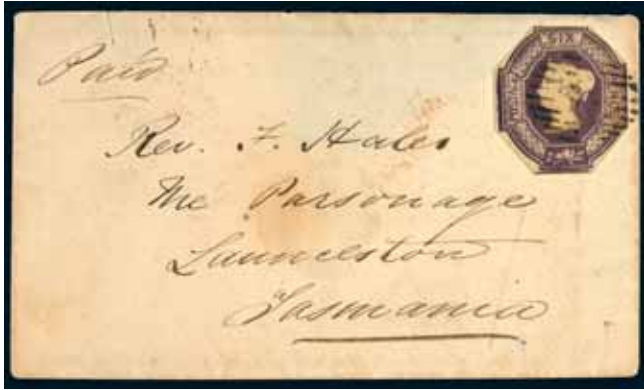 SIX
Paid
Rev. F. Hales
The Parsonage
Launceston
Tasmania